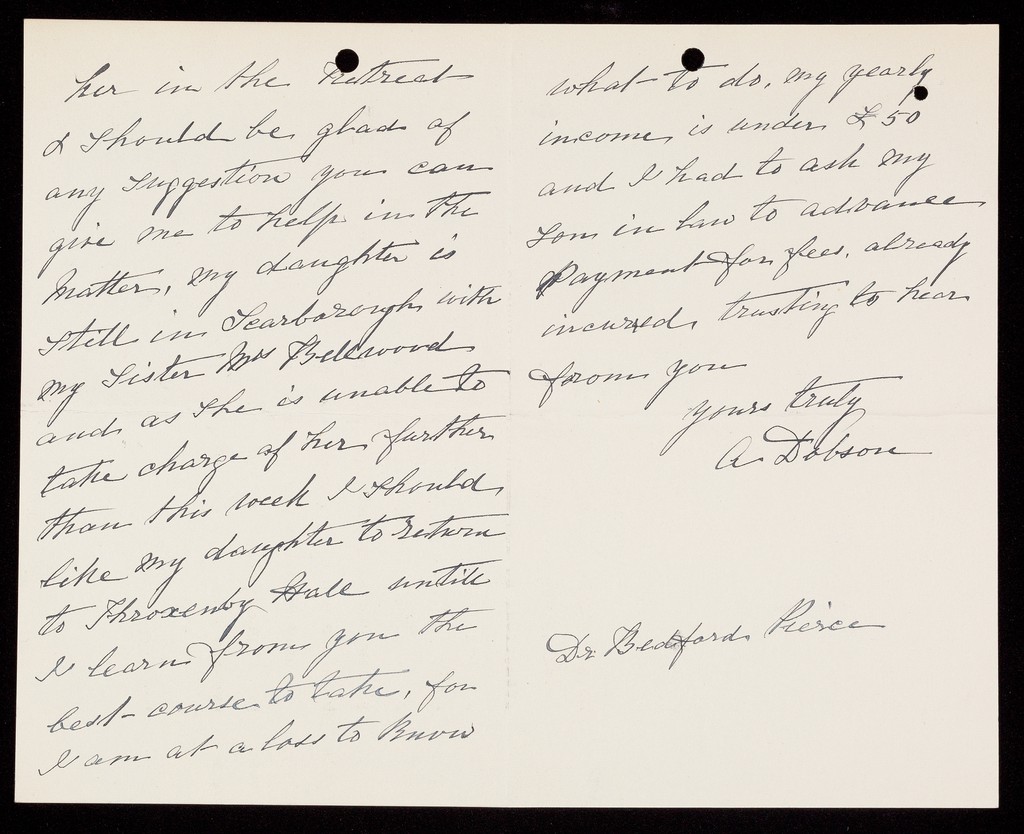 her in the Retreat
& I should be glad of
any suggestion you can
give me to help in the
Matter, My daughter is
still in Scarborough with
my Sister Mrs Bellwood
and as she is unable to
take charge of her further
than this week I should
like My daughter to return
to Throxenby Hall untill
I learn from you the
best course to take, for
I am at a loss to Know
what to do, my yearly
income is under £50
and I had to ask My
son in law to advance
Payment for fees, already
incurred, trusting to hear
from you
yours truly
A Dobson
Dr Bedford Pierce